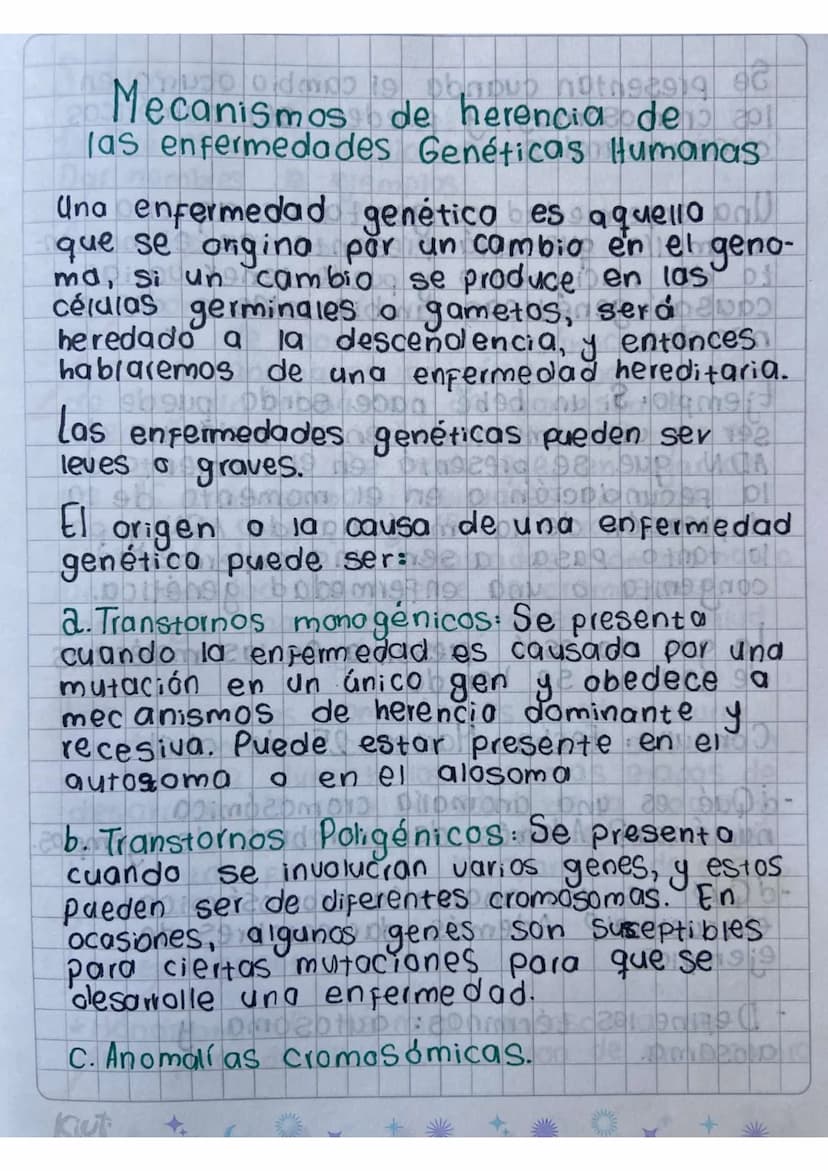 Mecanismos de herencia de
las enfermedades Genéticas Humanas
Una enfermedad genética es aquella
que se origina por un cambio en el geno-
ma, si un cambio se produce en las
células germinales o gametos, será
heredado a la descendencia, y entonces
hablaremos de una enfermedad hereditaria.
Las enfermedades genéticas pueden ser
leves o graves.
El origen o la causa de una enfermedad
genética puede ser:
a. Transtornos monogénicos: Se presenta
cuando la enfermedad es causada por una
mutación en un único gen y obedece a
mecanismos de herencia dominante y
recesiva. Puede estar presente en el
autosoma o en el alosoma
b. Transtornos Poligénicos: Se presenta
cuando se involucran varios genes, y estos
pueden ser de diferentes cromosomas. En
ocasiones, algunos genes son suseptibles
para ciertas mutaciones para que se
desarrolle una enfermedad.
c. Anomalías cromosómicas.
Kiut